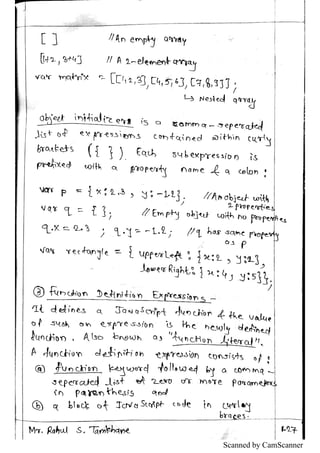 [ ] //An empty array
[1+2, 3+4] // A 2-element array
var matrix = [[1,2,3], [4,5,6], [7,8,9]];
↳ Nested array
object initializers is a comma-seperated
list of expressions contained within curly
brackets ({ }). Each subexpression is
prefixed with a property name & a colon :
var p = {x:2.3, y:-1.2}; //An object with
2 properties
var q = {}; // Empty object with no properties
q.x = 2.3 ; q.y = -1.2; //q has same property
as p
var rectangle = { upperLeft : {x:2, y:2},
lowerRight : {x:4, y:5}};
③ Function Definition Expressions -
It defines a JavaScript function & the value
of such an expression is the newly defined
function. Also known as "function literal".
A function definition expression consists of :
ⓐ function keyword followed by a comma-
seperated list of zero or more parameters
in paranthesis and
ⓑ a block of JavaScript code in curley
braces.
Mr. Rahul S. Tamkhane 1.27
Scanned by CamScanner